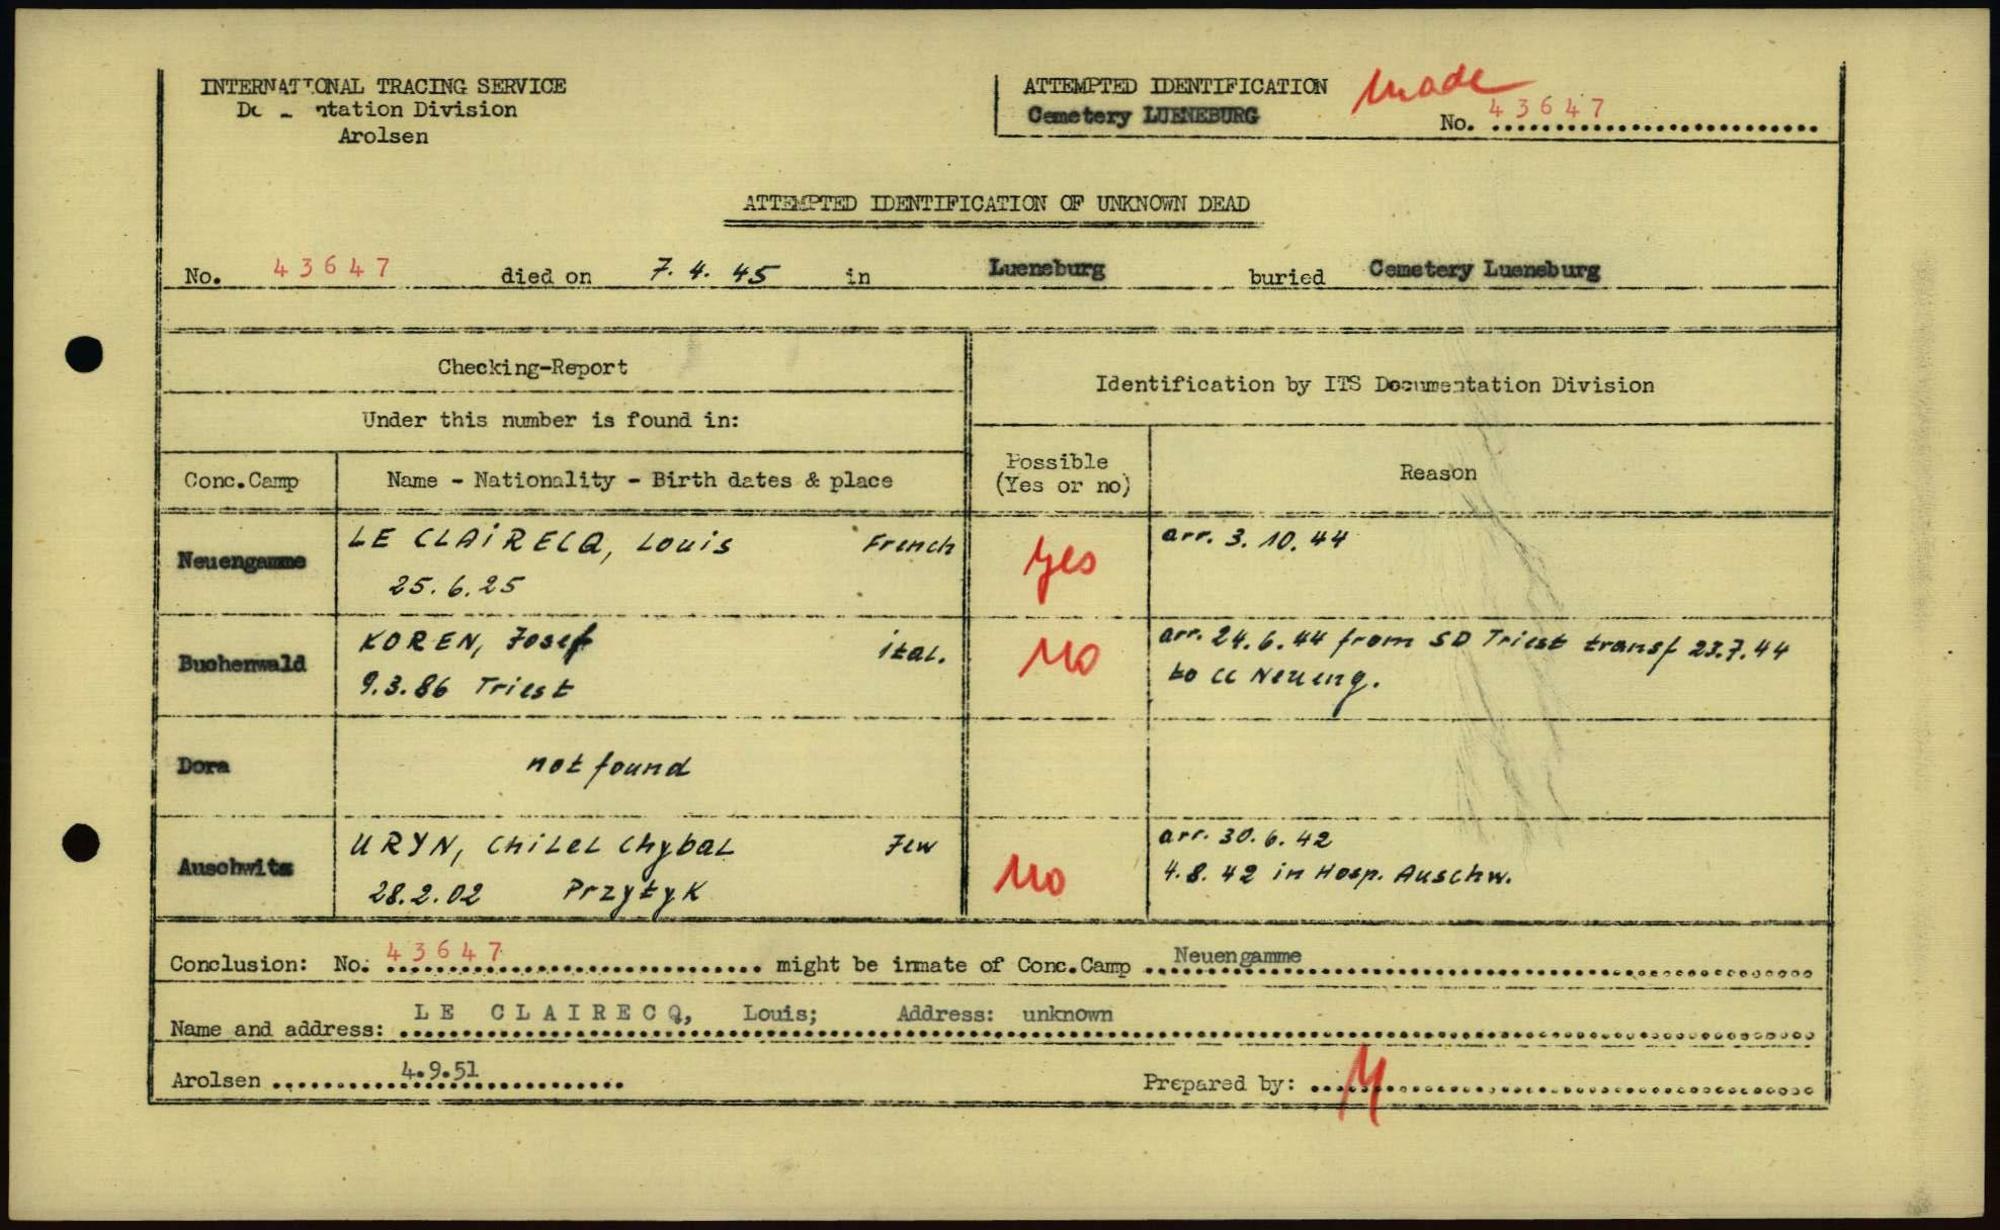 INTERNATIONAL TRACING SERVICE
Documentation Division
Arolsen
ATTEMPTED IDENTIFICATION made
Cemetery LUENEBURG
No. 43647
ATTEMPTED IDENTIFICATION OF UNKNOWN DEAD
No. 43647 died on 7. 4. 45 in Lueneburg buried Cemetery Lueneburg
Checking-Report
Identification by ITS Documentation Division
Under this number is found in:
Conc.Camp Name - Nationality - Birth dates & place Possible (Yes or no) Reason
Neuengamme LE CLAIRECQ, Louis French yes arr. 3. 10. 44
25. 6. 25
Buchenwald KOREN, Josef ital. no arr. 24. 6. 44 from SD Triest transf 23.7.44
9.3.86 Triest to CC Neueng.
Dora not found
Auschwitz URYN, Chilel Chybal Jew no arr. 30. 6. 42
28.2.02 Przytyk 4. 8. 42 in Hosp. Auschw.
Conclusion: No. 43647 might be inmate of Conc.Camp Neuengamme
Name and address: LE CLAIRECQ, Louis; Address: unknown
Arolsen 4.9.51 Prepared by: